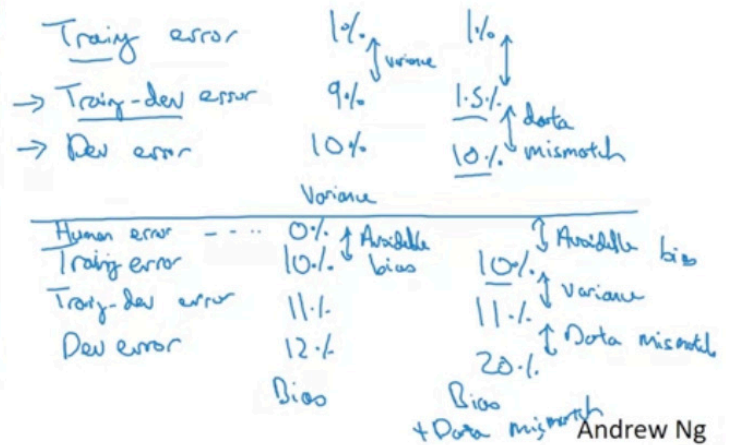 Training error 1% 1%
variance
→ Training-dev error 9% 1.5%
data
→ Dev error 10% 10% mismatch
Variance
Human error ---.. 0% Avoidable Avoidable bias
Training error 10% bias 10%
variance
Training-dev error 11% 11%
Data mismatch
Dev error 12% 20%
Bias Bias
+ Data mismatch
Andrew Ng